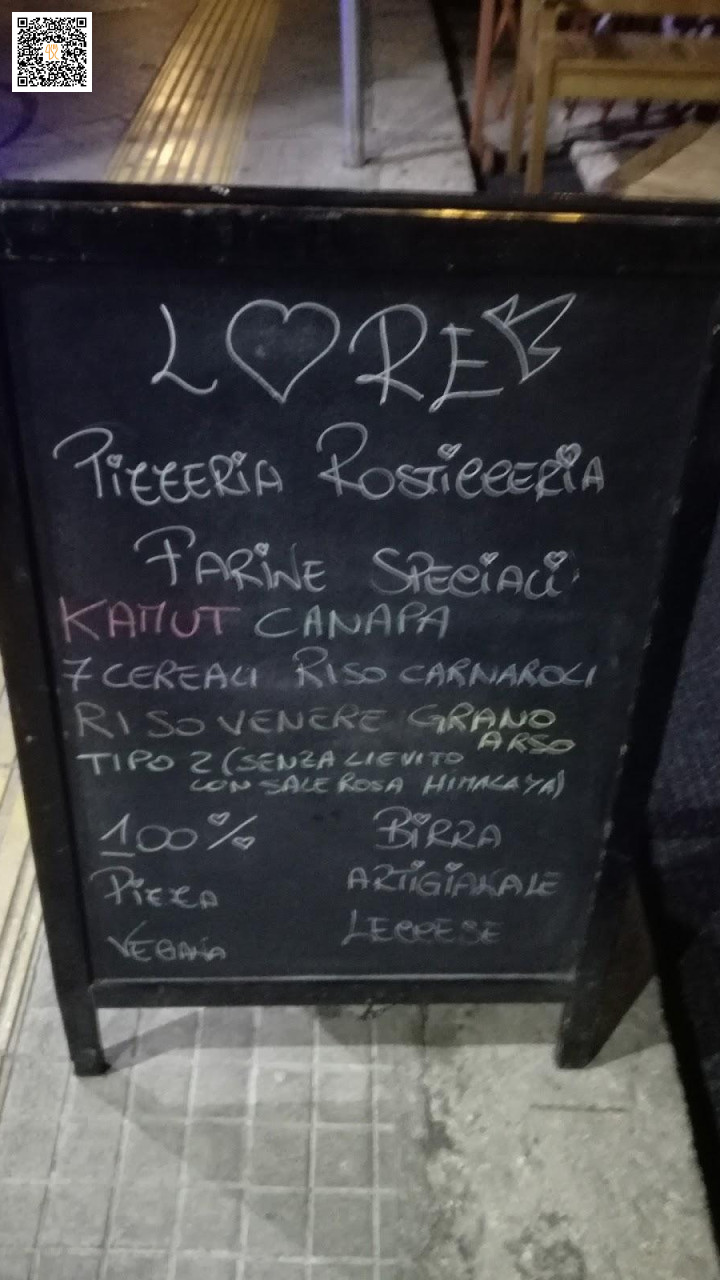 LORE
PIZZERIA ROSTICCERIA
FARINE SPECIALI
KAMUT CANAPA
7 CEREALI RISO CARNAROLI
RISO VENERE GRANO
ARSO
TIPO 2 (SENZA LIEVITO
CON SALE ROSA HIMALAYA)
100% BIRRA
PIZZA ARTIGIANALE
VEGANA LECCESE